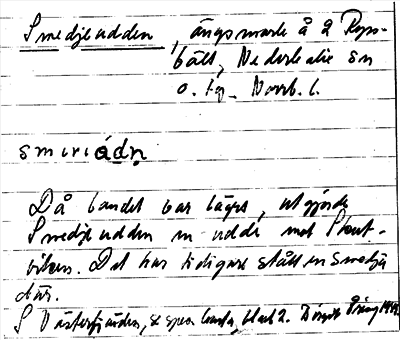 Smedjeudden, ängsmark å 2 Rep-
bäck, Nederkalix sn
o. tg. Norrb. l.
smiriádṇ
Då landet var lägre, utgjorde
Smedjeudden en udde mot Skut-
viken. Det har tidigare stått en smedja
där.
S Västerfjärden, se spec. karta, blad 2.